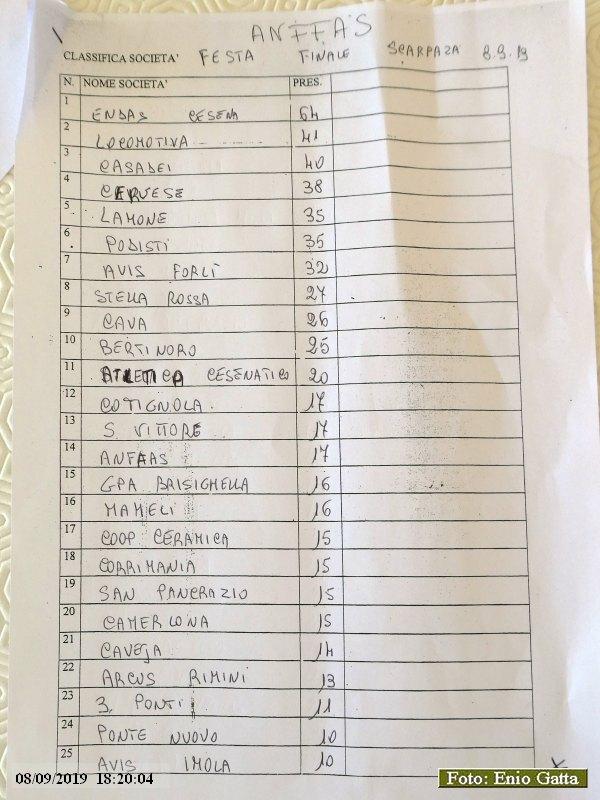 ANFFAS
CLASSIFICA SOCIETA' FESTA FINALE SCARPAZA 8.9.19
N. NOME SOCIETA' PRES.
1 ENDAS CESENA 64
2 LOCOMOTIVA 41
3 CASADEI 40
4 CERVESE 38
5 LAMONE 35
6 PODISTI 35
7 AVIS FORLÌ 32
8 STELLA ROSSA 27
9 CAVA 26
10 BERTINORO 25
11 ATLETICA CESENATICO 20
12 COTIGNOLA 17
13 S VITTORE 17
14 ANFAAS 17
15 GPA BRISIGHELLA 16
16 MAMELI 16
17 COOP CERAMICA 15
18 CORRIMANIA 15
19 SAN PANCRAZIO 15
20 CAMERLONA 15
21 CAVEJA 14
22 ARCUS RIMINI 13
23 3 PONTI 11
24 PONTE NUOVO 10
25 AVIS IMOLA 10
08/09/2019 18:20:04
Foto: Enio Gatta